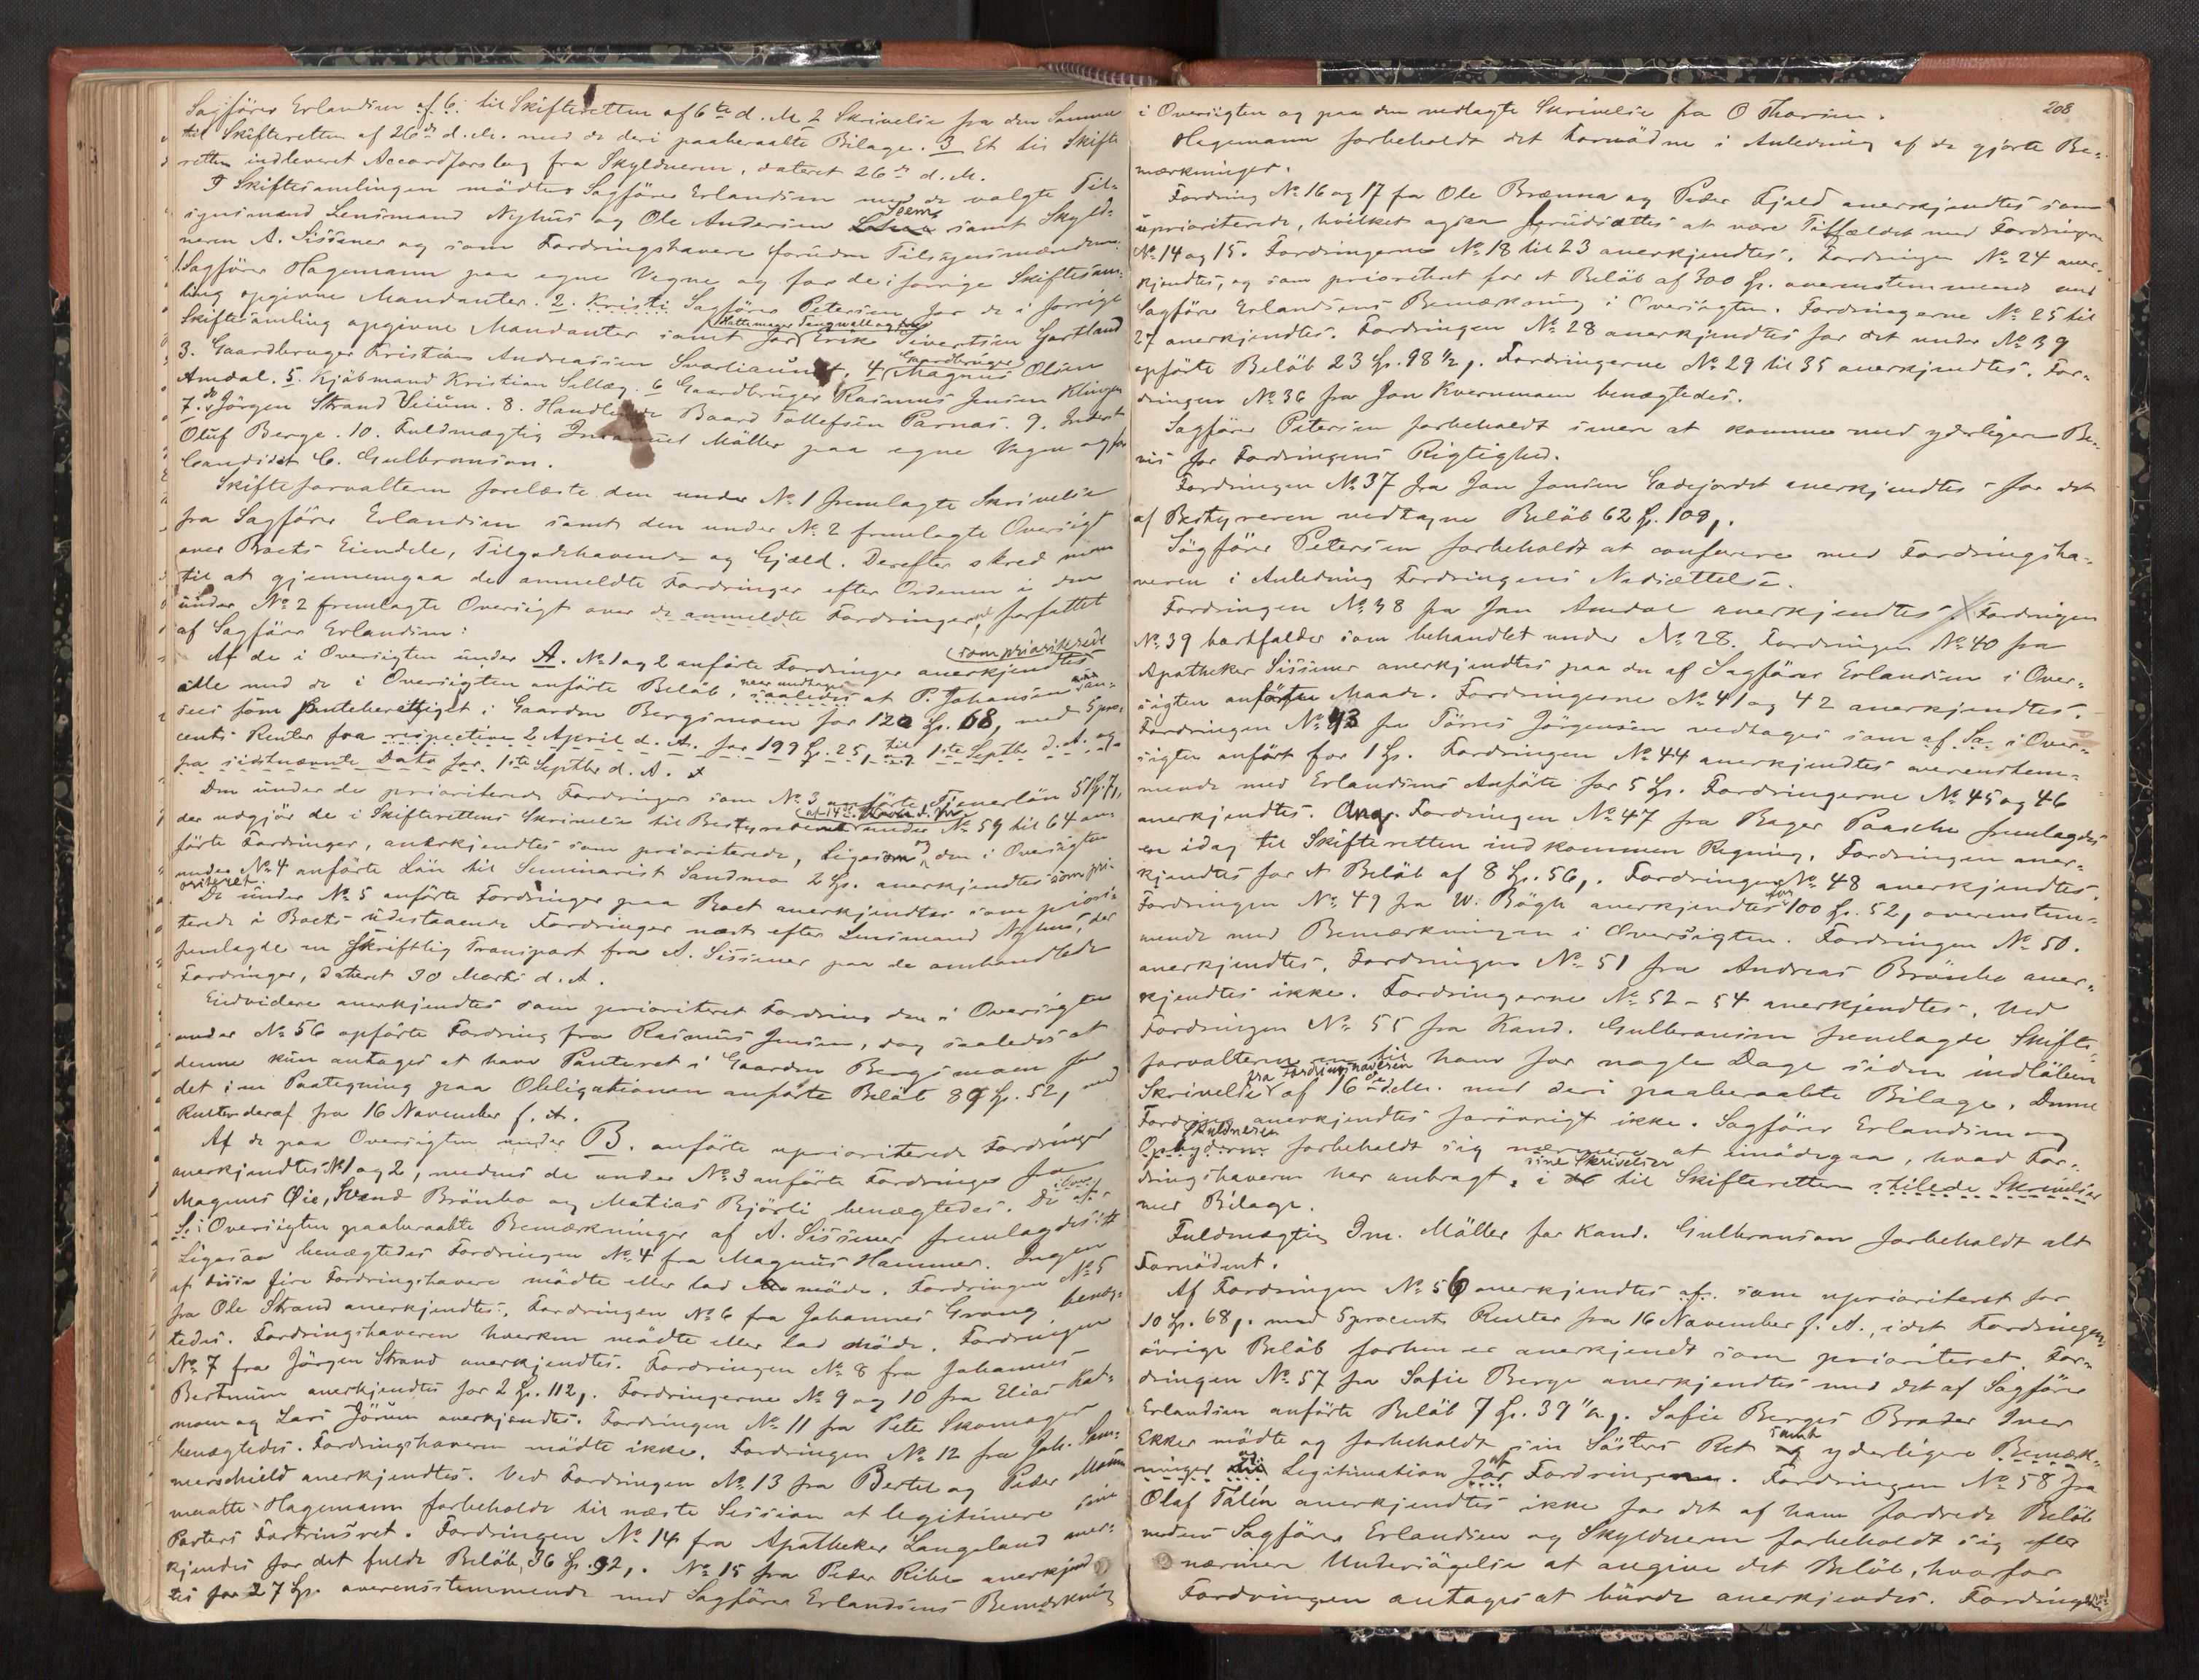 Sagfører Erlandsen af 6. til Skifteretten af 6te d. M. 2 Skrivelse fra den Samme
til Skifteretten af 26de d. M. med de deri paaberaabte Bilage. 3 Et til Skifte
retten indleveret Accordforslag fra Skyldneren, dateret 26de d. M.
I Skiftesamlingen mödte Sagförer Erlandsen med de valgte Til-
synsmænd Lensmand Nyhus og Ole Andersen Seem samt Skyld-
neren A. Sissener og som Fordringshavere foruden Tilsynsmændene:
1. Sagförer Hagemann paa egne Vegne og for de i forrige Skiftesam-
ling opgivne Mandanter. 2. Kristi Sagförer Petersen for de i forrige
Skiftesamling opgivne Mandanter samt for Hattemager Tengwall og for Erik Sivertsen Gartland
3. Gaardbruger Kristian Andreassen Svarliaunet. 4 Gaardbruger Magnus Olsen
Amdal. 5. Kjöbmand Kristian Selleg. 6 Gaardbruger Rasmus Jensen Klingen
7. do Jörgen Strand Veium. 8. Handlende Baard Tollefsen Parnas. 9. Inderst
Oluf Berge. 10. Fuldmægtig Immanuel Möller paa egne Vegne og for
Candidat C. Gulbranson.
Skifteforvalteren forelæste den under No 1 fremlagte Skrivelse
fra Sagförer Erlandsen samt den under No 2 fremlagte Oversigt
over Boets Eiendele, Tilgodehavende og Gjæld. Derefter skred man
til at gjennemgaa de anmeldte Fordringer efter Ordenen i den
under No 2 fremlagte Oversigt over de anmeldte Fordringer, forfattet
af Sagförer Erlandsen:
Af de i Oversigten under A. No 1 og 2 anförte Fordringer anerkjendtes som prioriterede
alle med de i Oversigten anförte Belöb, saaledes at P. Johansen
sees som panteberettiget i Gaarden Bergsmoen for 120 Sp. 68, med 5 pro-
cents Renter fra respective 2 April d. A. for 199 Sp. 25, til 1ste Septbr d. A. og
fra sidstnævnte Dato for 1ste Septbr d. A.
Den under de prioriterede Fordringer som No 3 anförte Tjenerlön 51 Sp. 71,
der udgjör de i Skifterettens Skrivelse til Bestyrelsen under No 59 til 64 an-
förte Fordringer, anerkjendtes som prioriterede, ligesom og den i Oversigten
under No 4 anförte Lön til Seminarist Sandmo 2 Sp. anerkjendtes som pri-
oriteret.
De under No 5 anförte Fordringer paa Boet anerkjendtes som priori-
terede i Boets udestaaende Fordringer næst efter Lensmand Nyhus, der
fremlagde en skriftlig Transport fra A. Sissener paa de omhandlede
Fordringer, dateret 30 Marts d. A.
Endvidere anerkjendtes som prioriteret Fordring den i Oversigten
under No 56 opförte Fordring fra Rasmus Jensen, dog saaledes at
denne kun antages at have Panteret i Gaarden Bergsmoen for
det i en Paategning paa Obligationen anförte Belöb 89 Sp. 52, med
Renter deraf fra 16 November f. A.
Af de paa Oversigten under B. anförte uprioriterede Fordringer
anerkjendtes No 1 og 2, medens de under No 3 anförte Fordringer fra
Magnus Öie, Svend Brönbo og Mathias Björli benægtedes. De af
S. i Oversigten paaberaabte Bemærkninger af A. Sissener fremlagdes.
Ligesaa benægtedes Fordringen No 4 fra Magnus Hammer. Ingen
af disse fire Fordringshavere mödte eller lod möde. Fordringen No 5
fra Ole Strand anerkjendtes. Fordringen No 6 fra Johannes Grong benæg-
tedes. Fordringshaveren hverken mödte eller lod möde. Fordringen
No 7 fra Jörgen Strand anerkjendtes. Fordringen No 8 fra Johannes
Bertnum anerkjendtes for 2 Sp. 112,. Fordringerne No 9 og 10 fra Elias Kal-
moen og Lars Jörum anerkjendtes. Fordringen No 11 fra Pete Skomager
benægtedes. Fordringshaveren mödte ikke. Fordringen No 12 fra Joh. Som-
merschield anerkjendtes. Ved Fordringen No 13 fra Bertel og Peder Moum
maatte Hagemann forbeholde til næste Session at legitimere sine
Parters Fortrinsret. Fordringen No 14 fra Apotheker Langeland aner-
kjendes for det fulde Belöb, 36 Sp. 92,. No 15 fra Peder Ribe anerkjend-
tes for 27 Sp. overensstemmende med Sagförer Erlandsens Bemærkning
208
i Oversigten og paa den vedlagte Skrivelse fra O Thorsen.
Hagemann forbeholdt det Fornödne i Anledning af de gjorte Be-
mærkninger.
Fordring No 16 og 17 fra Ole Brænna og Peder Fjeld anerkjendtes som
uprioriterede, hvilket ogsaa forudsættes at være Tilfældet med Fordringerne
No 14 og 15. Fordringerne No 18 til 23 anerkjendtes. Fordringen No 24 aner-
kjendtes, og som prioriteret for et Belöb af 300 Sp. overensstemmende med
Sagförer Erlandsens Bemærkning i Oversigten. Fordringerne No 25 til
27 anerkjendtes. Fordringen No 28 anerkjendtes for det under No 39
opförte Belöb 23 Sp. 98 1/2,. Fordringerne No 29 til 35 anerkjendtes. For-
dringen No 36 fra Jon Kvernmoen benægtedes.
Sagförer Petersen forbeholdt senere at komme med yderligere Be-
vis for Fordringens Rigtighed.
Fordringen No 37 fra Jon Jonsen Gadejordet anerkjendtes for det
af Bestyreren vedtagne Belöb 62 Sp. 109,.
Sagförer Petersen forbeholdt at conferere med Fordringsha-
veren i Anledning Fordringens Nedsættelse.
Fordringen No 38 fra Jon Amdal anerkjendtes. Fordringen
No 39 bortfalder som behandlet under No 28. Fordringen No 40 fra
Apotheker Sissener anerkjendtes paa den af Sagförer Erlandsen i Over-
sigten anförte Maade. Fordringerne No 41 og 42 anerkjendtes.
Fordringen No 43 fra Törres Jörgensen vedtages som af Sa. i Over-
sigten anfört for 1 Sp. Fordringen No 44 anerkjendtes overenstem-
mende med Erlandsens Anförte for 5 Sp. Fordringerne No 45 og 46
anerkjendtes. Ang. Fordringen No 47 fra Bager Paasche fremlagdes
en idag til Skifteretten indkommen Regning. Fordringen aner-
kjendtes for et Belöb af 8 Sp. 56,. Fordringen No 48 anerkjendtes.
Fordringen No 49 fra W. Bögh anerkjendtes for 100 Sp. 52, overenstem-
mende med Bemærkningen i Oversigten. Fordringen No 50.
anerkjendtes. Fordringen No 51 fra Andreas Brönbo aner-
kjendtes ikke. Fordringerne No 52 - 54 anerkjendtes. Ved
Fordringen No 55 fra Kand. Gulbranson fremlagde Skifte-
forvalteren en til ham for nogle Dage siden indlöben
Skrivelse fra Fordringshaveren af 16de d. M. med deri paaberaabte Bilage. Denne
Fordring anerkjendtes forövrigt ikke. Sagförer Erlandsen og
Skyldneren forbeholdt sig nærmere at imödegaa, hvad For-
dringshaveren har anbragt i sine Skrivelser til Skifteretten stilede Skrivelser
med Bilage.
Fuldmægtig Im. Möller for Kand. Gulbranson forbeholdt alt
Fornödent.
Af Fordringen No 56 anerkjendtes af. som uprioriteret for
10 Sp. 68,. med 5 procents Renter fra 16 November f. A., idet Fordringens
övrige Belöb forhen er anerkjendt som prioriteret. For-
dringen No 57 fra Sofie Berge anerkjendtes med det af Sagförer
Erlandsen anförte Belöb 7 Sp. 39,. Sofie Berges Broder Iver
Ekker mödte og forbeholdt sin Sösters Ret samt yderligere Bemærk-
ninger og Legitimation for Fordringen. Fordringen No 58 fra
Olaf Talén anerkjendtes ikke for det af ham fordrede Belöb
medens Sagförer Erlandsen og Skyldneren forbeholdt sig efter
nærmere Undersögelse at angive det Belöb, hvorfor
Fordringen antages at burde anerkjendes. Fordringerne